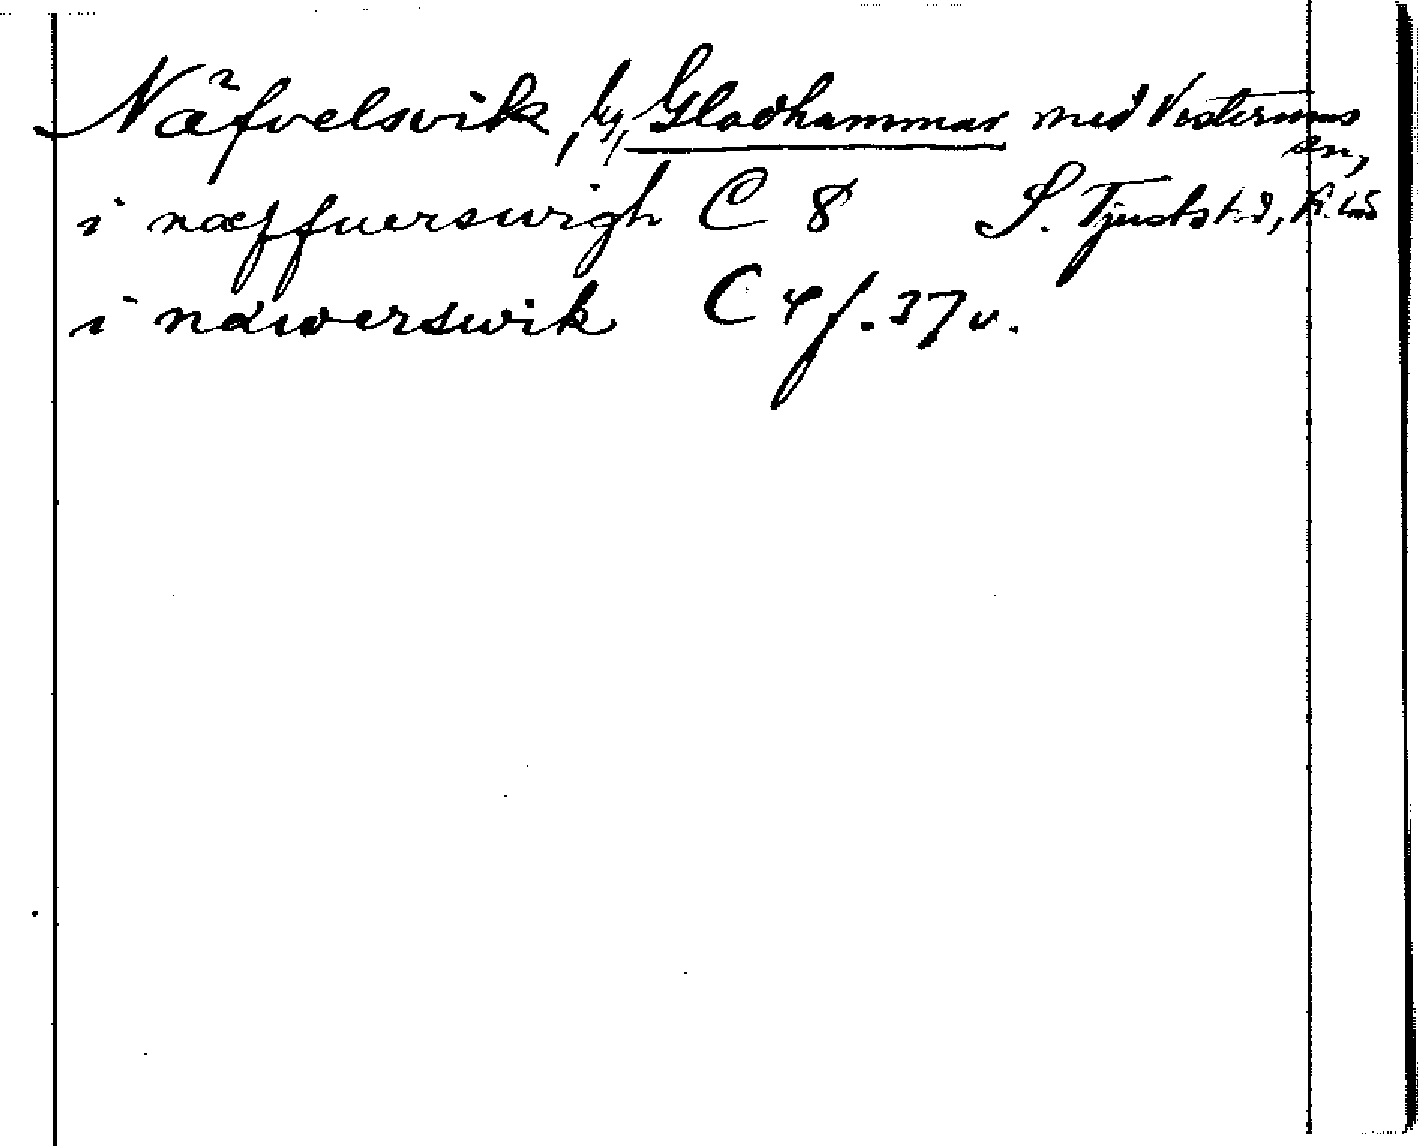 Näfvelsvik, by, Gladhammar med Västerums
en,
i næffuerswigh C 8 S. Tjusts hd, K. län
i näwerswik C 4 f. 37 v.